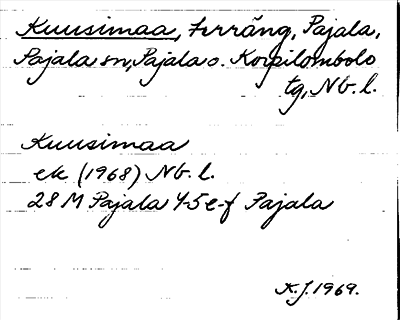 Kuusimaa, terräng, Pajala,
Pajala sn, Pajala o. Korpilombolo
tg, Nb. l.
Kuusimaa
ek (1968) Nb. l.
28 M Pajala 4-5 e-f Pajala
K.J. 1969.